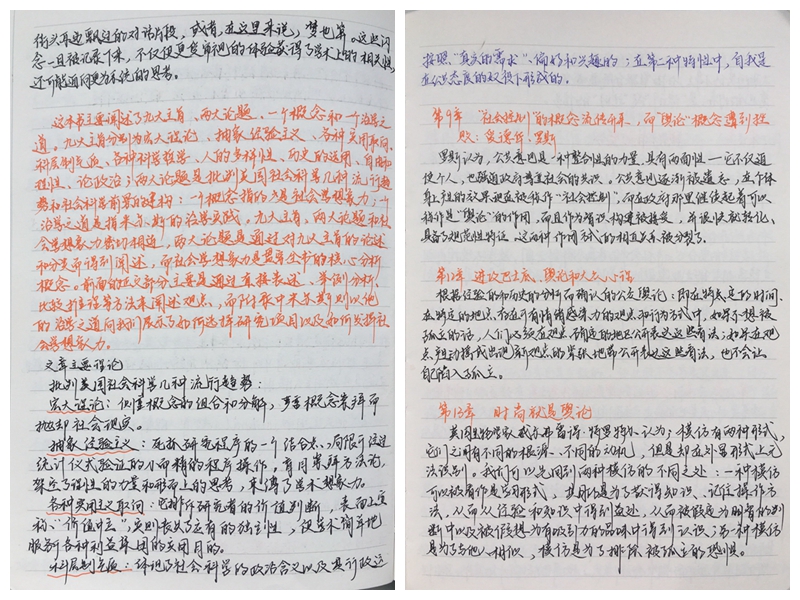 街头耳边飘过的对话片段，或者，在这里来说，梦也算。这些闪
念一旦被记录下来，不仅使更直观的体验获得了学术上的相关性，
还可能通向更为系统的思考。
这本书主要阐述了九大主旨、两大论题、一个概念和一个治学之
道。九大主旨分别为宏大理论、抽象经验主义、各种实用取向、
科层制气质、各种科学哲学、人的多样性、历史的运用、自由和
理性、论政治；两大论题是批判美国社会科学几种流行趋
势和社会科学前景的建构；一个概念指的乃是社会学想象力；一个
治学之道是指米尔斯的治学实践。九大主旨、两大论题和社
会学想象力密切相连，两大论题是通过对九大主旨的论述
和分类而得到阐述，而社会学想象力是贯穿全书的核心分析
概念。前面的正文部分主要是通过直接表述、举例分析、
比较等方法来阐述观点，而附录中米尔斯则以他
的治学之道向我们展示了如何选择研究项目以及如何发挥社
会学想象力。
文章主要理论
批判美国社会科学几种流行趋势：
宏大理论：侧重概念的组合和分解，享受概念崇拜而
抛却社会现实。
抽象经验主义：死抓研究程序的一个结合点，局限于经过
统计仪式验证的小而精的程序操作，盲目崇拜方法论，
架空了理性的力量和形而上的思考，束缚了学术想象力。
各种实用主义取向：它排斥研究者的价值判断，表面上宣
称“价值中立”，实则丧失了应有的独立性，使学术简单地
服务于各种利益集团的实用目的。
科层制气质：体现了社会科学的政治含义以及其行政运
按照“真实的需求”、偏好和兴趣的；在第二种特性中，自我是
在公共态度的权役下形成的。
第11章 “社会控制”的概念流传开来，而“舆论”概念遭到挫
败：爱德华·罗斯
罗斯认为，公共意见是一种整合性的力量，具有两面性——它不仅迫
使个人，也强迫政府尊重社会的共识。公共意见逐渐被遗忘，在个体
身上社的效果现在被称作“社会控制”，而在政府那里继续起着可以
称作是“舆论”的作用，而且作为有意识构建被接受，并很快就转化、
具备了规范性特征。这两种作用方式的相互关系被分割了。
第12章 进攻巴士底、舆论和大众心理
根据经验的和历史的分析而确认的公众舆论：即在特定的时间、
在特定的地点，存在于有情绪感染力的观点和行为方式中，如果不想被
孤立的话，人们必须在观点确定的地区公开表达这些看法；如果在观
点变动模式出现新观点的紧张地带公开表达这些看法，也不会让
自己陷入孤立。
第13章 时尚就是舆论
美国生物学家威尔弗雷德·特罗特尔认为；模仿有两种形式，
它们之间有不同的根源、不同的动机，但是却在外界形式上无
法识别。我们可以先回到两种模仿的不同之处：一种模仿
可以被看作是学习形式，其形成是为了获得知识、记住操作方
法，从而从经验和知识中得到益处，从而被假定为明智的判
断中以及被假想为有吸引力的品味中得到认识；另一种模仿
是为了与他人相似，模仿是为了排除被孤立的恐惧。